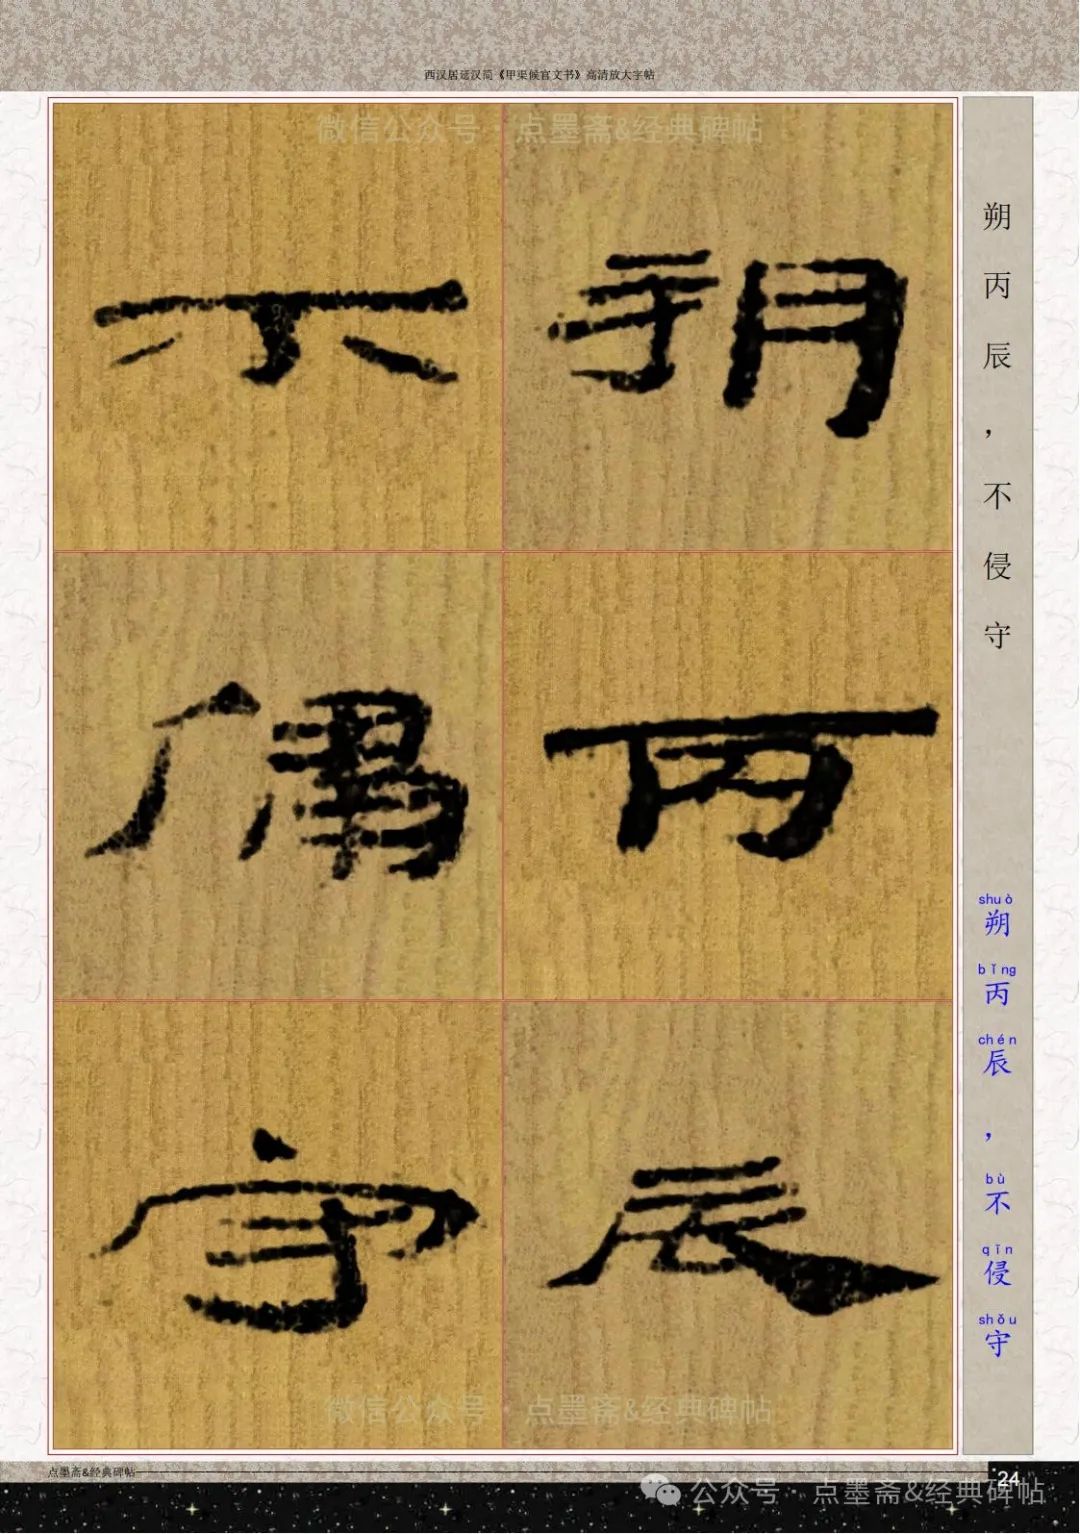 西汉居延汉简《甲渠候官文书》高清放大字帖
微信公众号 点墨斋&经典碑帖
朔丙辰
不侵守
朔丙辰，不侵守
shuò bǐng chén bù qīn shǒu
朔丙辰，不侵守
微信公众号 点墨斋&经典碑帖
点墨斋&经典碑帖
24
公众号·点墨斋&经典碑帖